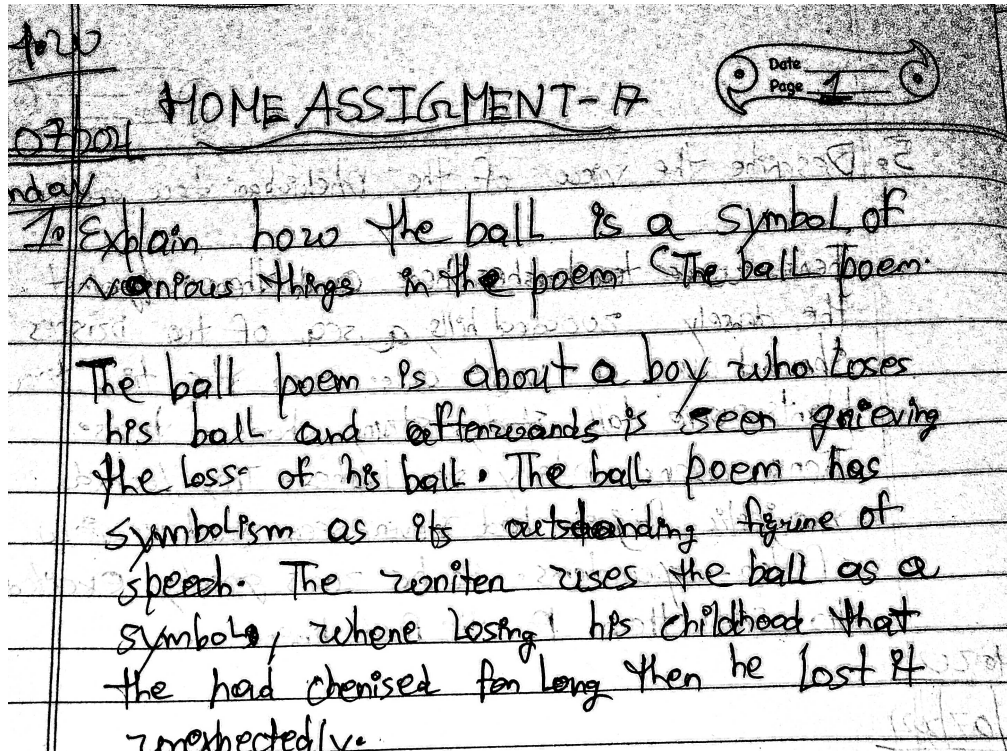 HOME ASSIGNMENT - 17
Date
Page 1
nday
1. Explain how the ball is a symbol of
various things in the poem (The ball poem.
The ball poem is about a boy who loses
his ball and afterwards is seen grieving
the loss of his ball. The ball poem has
symbolism as its outstanding figure of
speech. The writer uses the ball as a
symbol, where losing his childhood that
the had cherised for long then he lost it
unexpectedly.